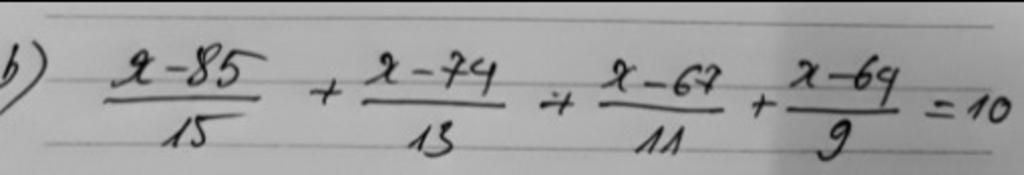 b) x-85/15 + x-74/13 + x-67/11 + x-64/9 = 10